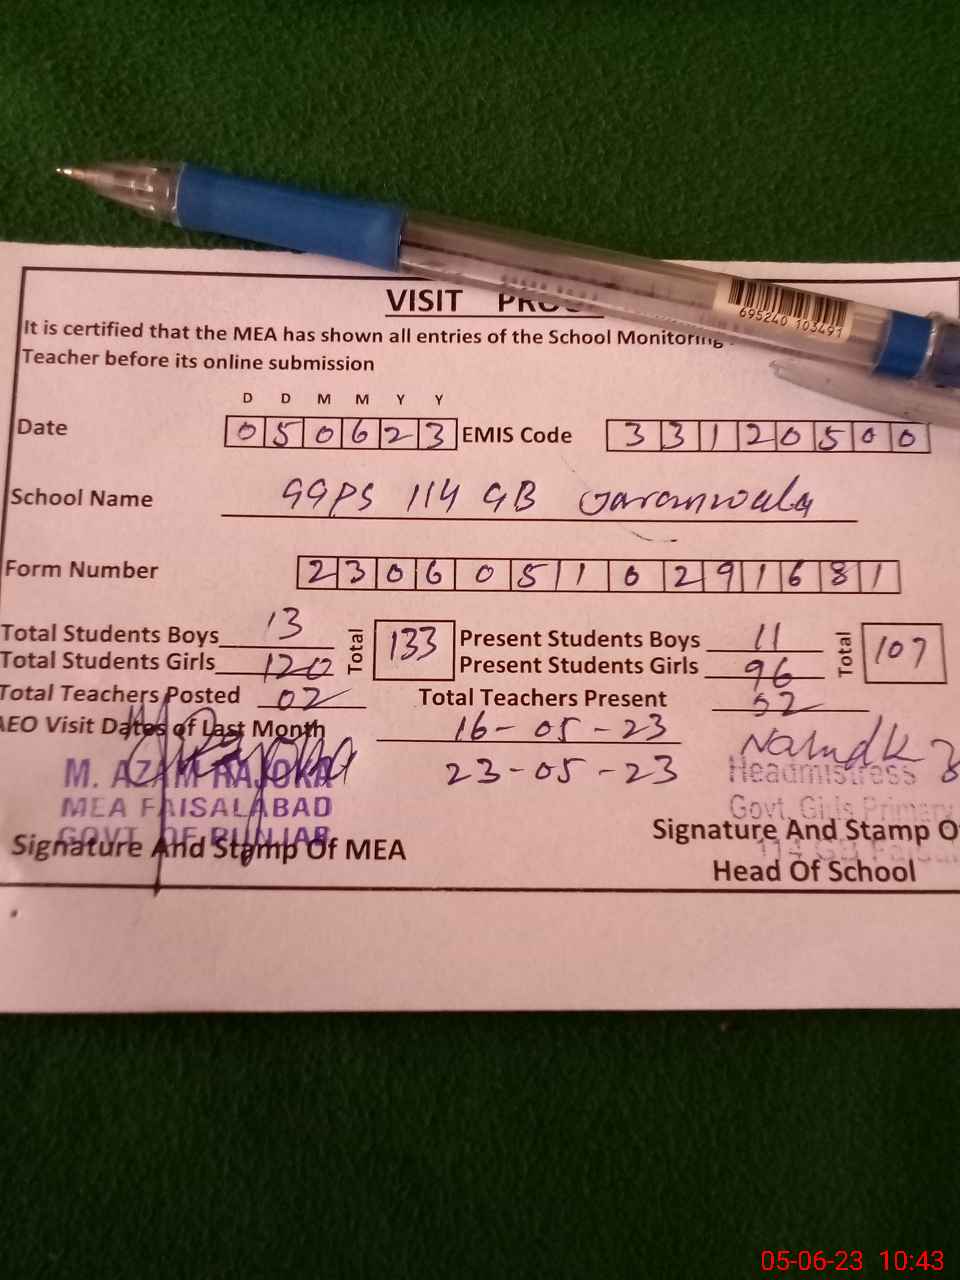 VISIT
695240 103491
It is certified that the MEA has shown all entries of the School Monitoring
Teacher before its online submission
D D M M Y Y
Date 0 5 0 6 2 3 EMIS Code 3 3 1 2 0 5 0 0
School Name GGPS 114 GB Jaranwala
Form Number 2 3 0 6 0 5 1 0 2 9 1 6 8 1
Total Students Boys 13 Total 133 Present Students Boys 11 Total 107
Total Students Girls 120 Present Students Girls 96
Total Teachers Posted 02 Total Teachers Present 02
AEO Visit Dates of Last Month 16-05-23
23-05-23
M. AZAM RAJOKA
MEA FAISALABAD
GOVT OF PUNJAB
Headmistress
Govt. Girls Primary
114 GB
Signature And Stamp Of MEA
Signature And Stamp O
Head Of School
05-06-23 10:43